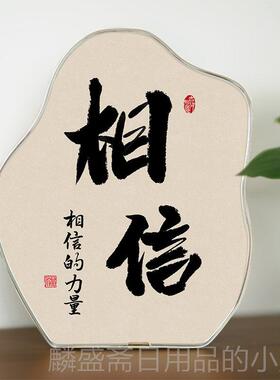 相信
相信的力量
麟盛斋日用品的小